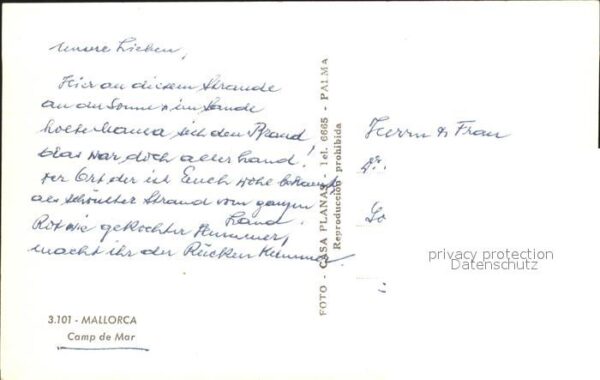 Unsere Lieben,
Hier an diesem Strande
an der Sonne & im Sande
holte Mama sich den Pfand
das war doch allerhand!
der Ort der ist Euch wohl bekannt
als schönster Strand vom ganzen
Land.
Rot wie gekochter Hummer,
macht ihr der Rücken Kummer
3.101 - MALLORCA
Camp de Mar
FOTO - CASA PLANAS - Tel. 6665 - PALMA
Reproducción prohibida
Herrn & Frau
Dr.
privacy protection
Datenschutz